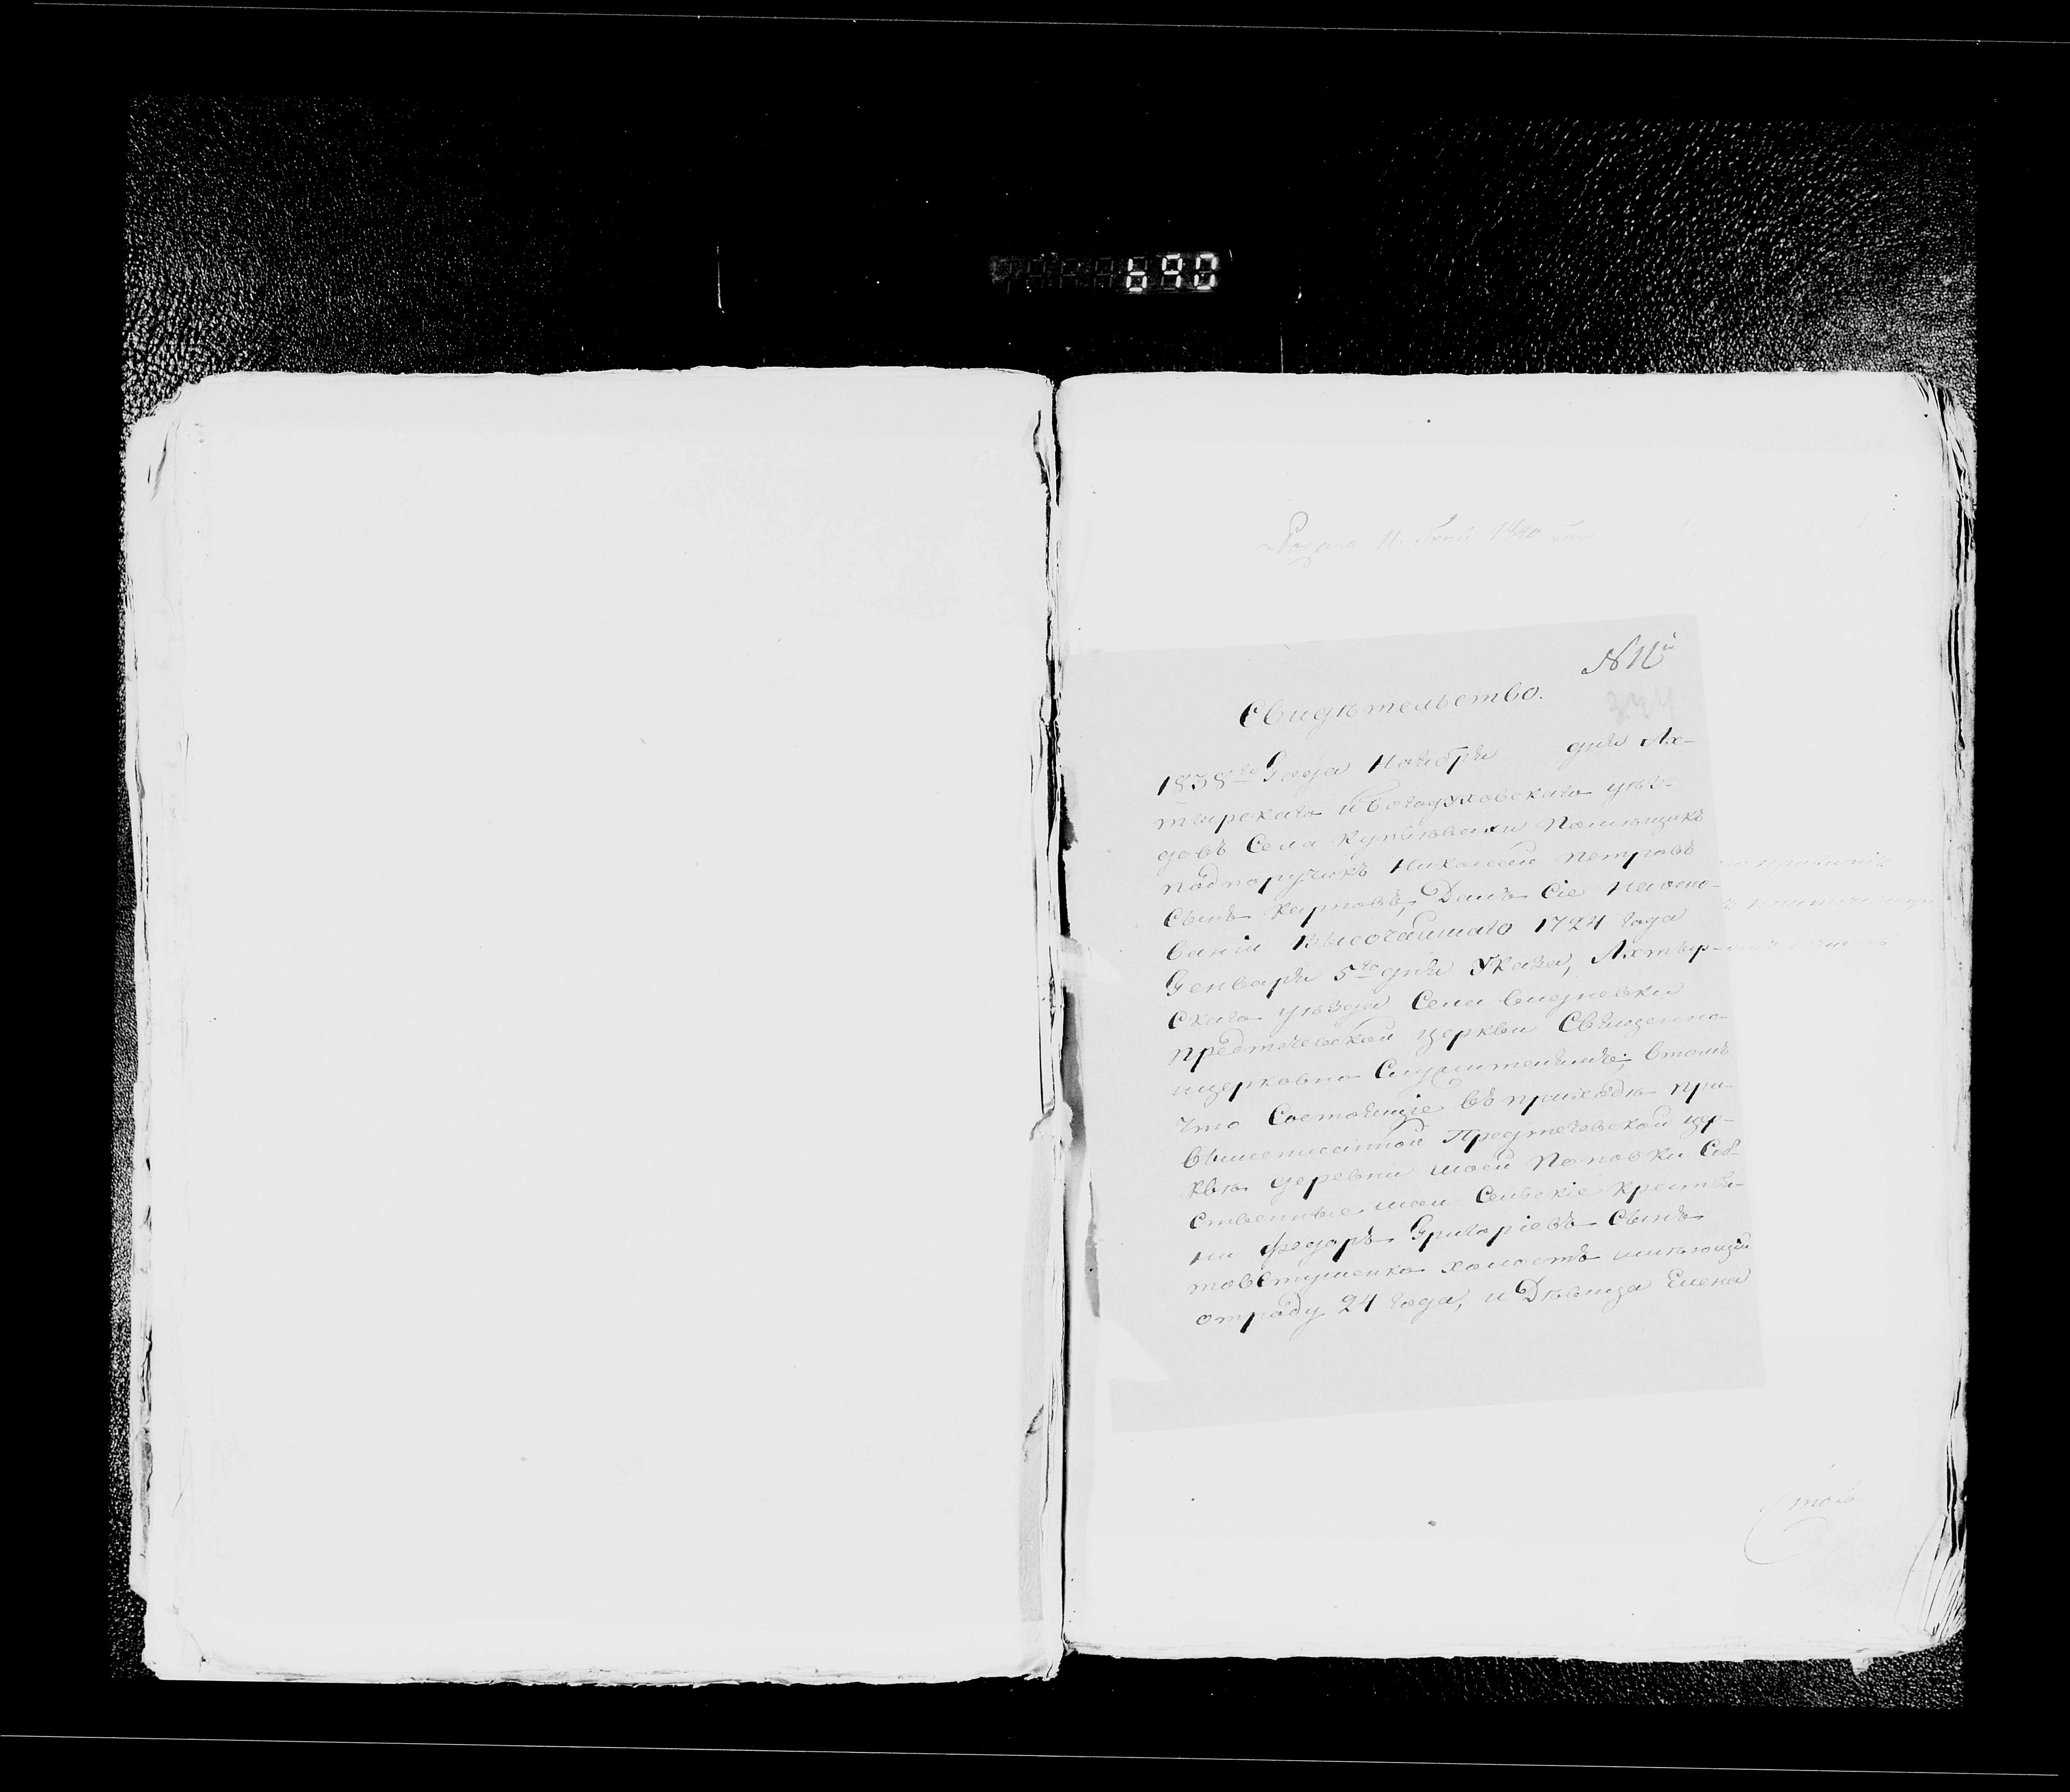 690
N 11й
344
Свидѣтельство.
1838го Года Ноября дня Ах-
тырскаго и Богодуховскаго уѣз-
довъ Села Купѣваки Помѣщикъ
подпоручикъ Николай Петровъ
Сынъ Картовъ, Далъ Сіе На осно-
ваніи Высочайшаго 1724 года
Генваря 5го дня Указа, Ахтыр-
скаго уѣзда Села Сидневки
предтечевской церкви Священно
ицерковно Служителямъ; втомъ
что Состоящіе въ приходѣ при
вышеписанной Предтечевской цер-
квѣ деревни моей Поповки Соб-
ственные мои Сельскіе Крестья-
ни Федоръ Григоріевъ Сынъ
товстушенко холостъ имѣющій
отроду 24 года, и Дѣвица Елена